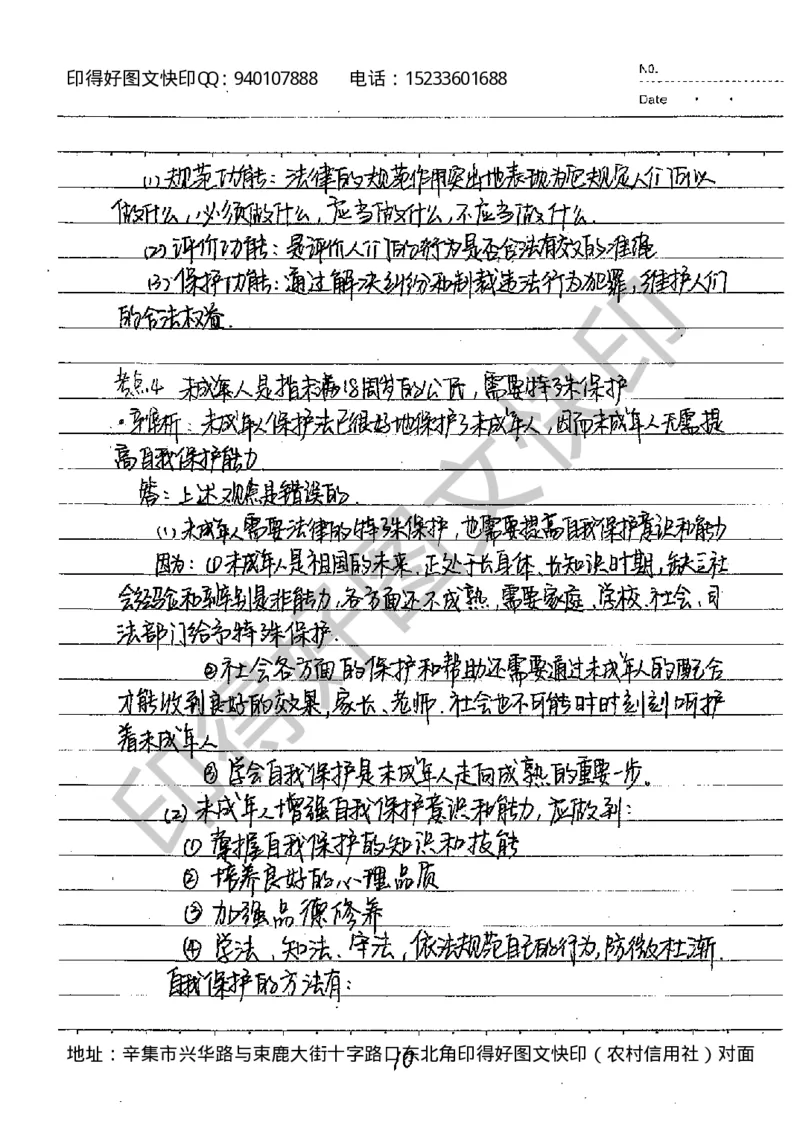 印得好图文快印QQ：940107888 电话：15233601688
No.
Date
(1)规范功能：法律的规范作用突出地表现为它规定人们可以
做什么，必须做什么，应当做什么，不应当做什么.
(2)评价功能：是评价人们的行为是否合法有效的准绳
(3)保护功能：通过解决纠纷和制裁违法行为犯罪，维护人们
的合法权益.
考点4 未成年人是指未满18周岁的公民，需要特殊保护
·辛保析：未成年人保护法已很好地保护了未成年人，因而未成年人无需提
高自我保护能力
答：上述观点是错误的.
(1)未成年人需要法律的特殊保护，也需要提高自我保护意识和能力
因为：①未成年人是祖国的未来，正处于长身体、长知识时期，缺乏社
会经验和辨别是非能力，各方面还不成熟，需要家庭、学校、社会、司
法部门给予特殊保护.
②社会各方面的保护和帮助还需要通过未成年人的配合
才能收到良好的效果，家长、老师.社会也不可能时时刻刻呵护
着未成年人
③学会自我保护是未成年人走向成熟的重要一步。
(2)未成年人增强自我保护意识和能力，应做到：
①掌握自我保护的知识和技能
②培养良好的心理品质
③加强品德修养
④学法、知法、守法，依法规范自己的行为，防微杜渐.
自我保护的方法有：
地址：辛集市兴华路与束鹿大街十字路口东北角印得好图文快印（农村信用社）对面
10
印得好图文快印